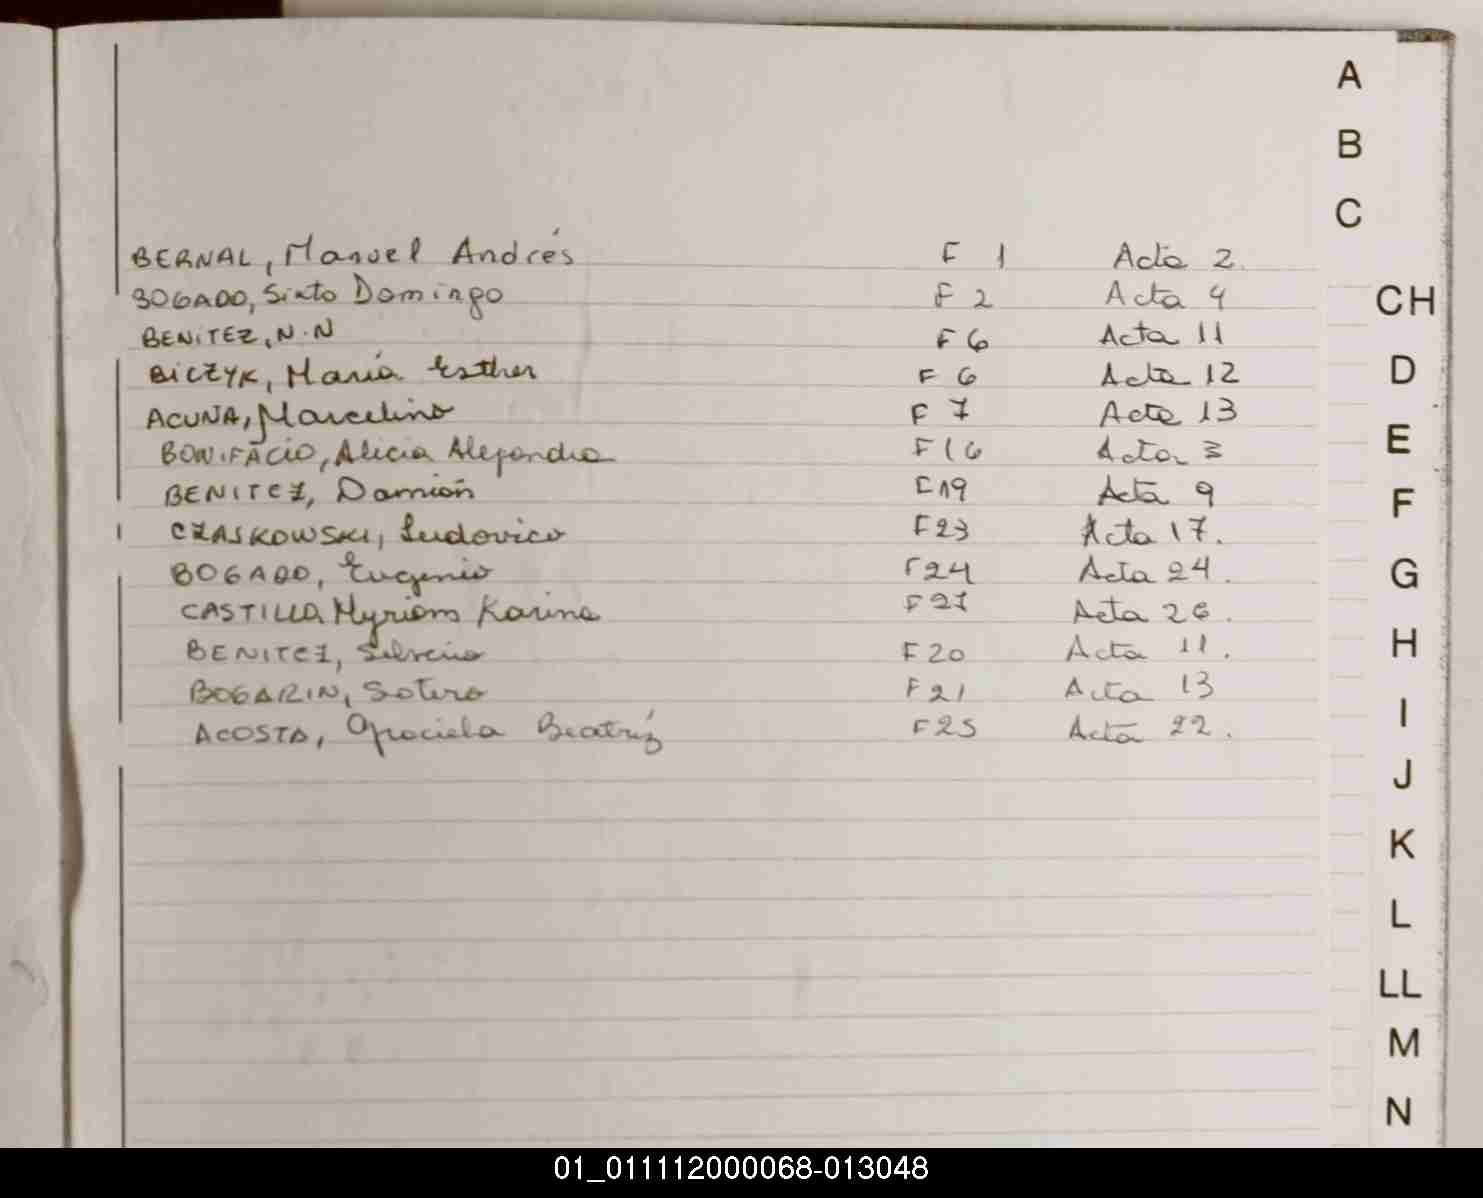 A
B
C
BERNAL, Manuel Andrés F 1 Acta 2.
BOGADO, Sixto Domingo F 2 Acta 4
CH
BENITEZ, N.N F 6 Acta 11
BICZYK, María Esther F 6 Acta 12
D
ACUNA, Marcelino F 7 Acta 13
BONIFACIO, Alicia Alejandra F 16 Acta 3
E
BENITEZ, Damión F 19 Acta 9
F
CZASKOWSKI, Ludovico F 23 Acta 17.
BOGADO, Eugenio F 24 Acta 24.
G
CASTILLA Myriam Karina F 27 Acta 26.
BENITEZ, Silverio F 20 Acta 11.
H
BOGARIN, Sotero F 21 Acta 13
ACOSTA, Graciela Beatríz F 25 Acta 22.
I
J
K
L
LL
M
N
01_011112000068-013048